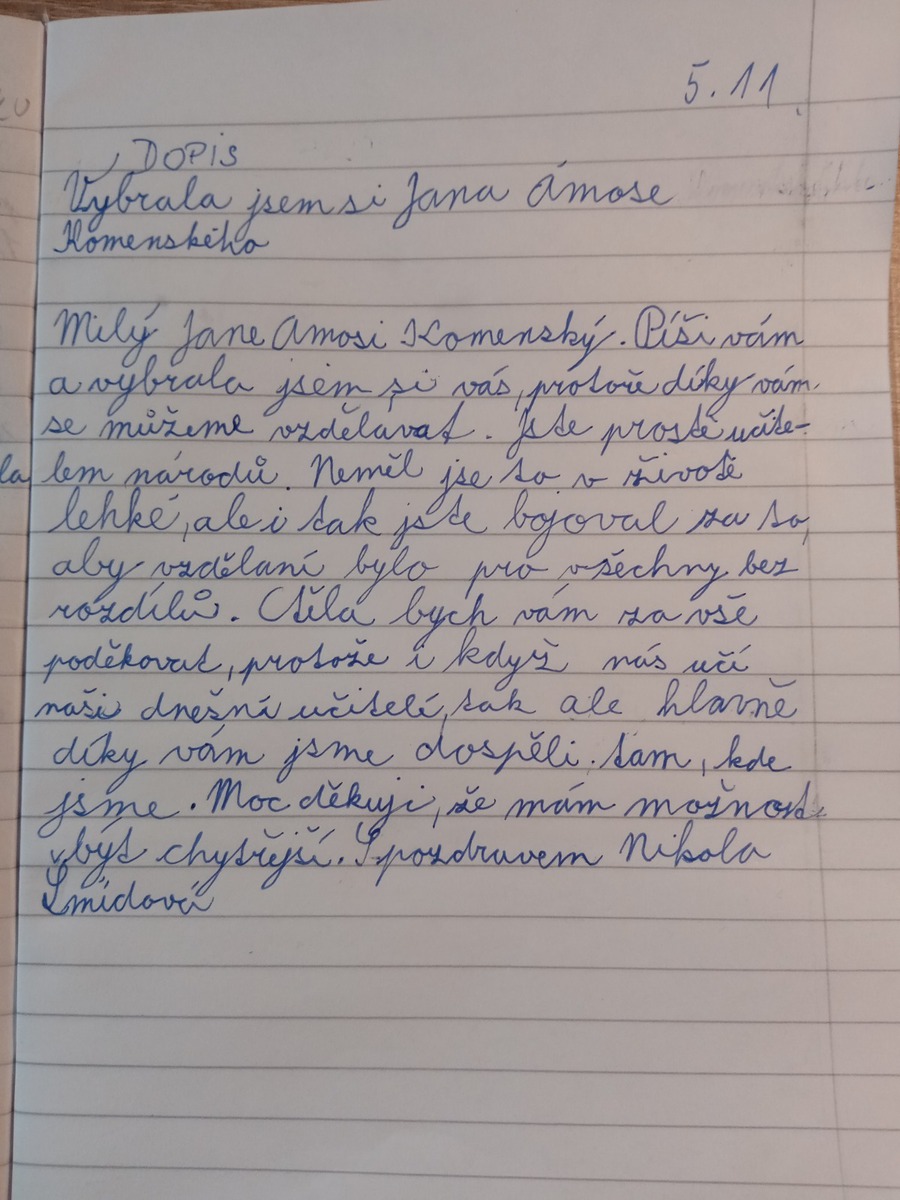 5.11.
DOPIS
Vybrala jsem si Jana Ámose
Komenského
Milý Jane Amosi Komenský. Píši vám
a vybrala jsem si vás, protoře díky vám
se můžeme vzdělavat. Jste prostě učite-
lem národů. Neměl jse to v životě
lehké, ale i tak jste bojoval za to,
aby vzdělaní bylo pro všechny bez
rozdílů. Ctěla bych vám za vše
poděkovat, protože i když nás učí
naši dnešní učitelé, tak ale hlavně
díky vám jsme dospěli tam, kde
jsme. Moc děkuji, že mám možnost
být chytřejší. S pozdravem Nikola
Šmídová
la